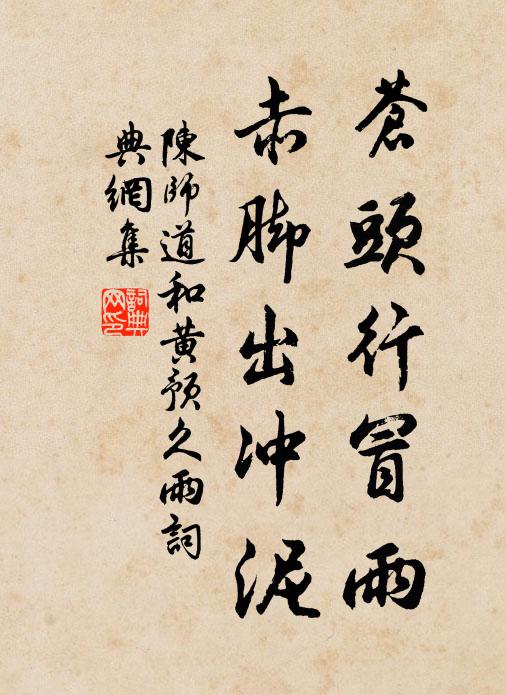 蒼頭行冒雨
赤脚出冲泥
陳師道和黃預久雨詞
典網集
詞典网印